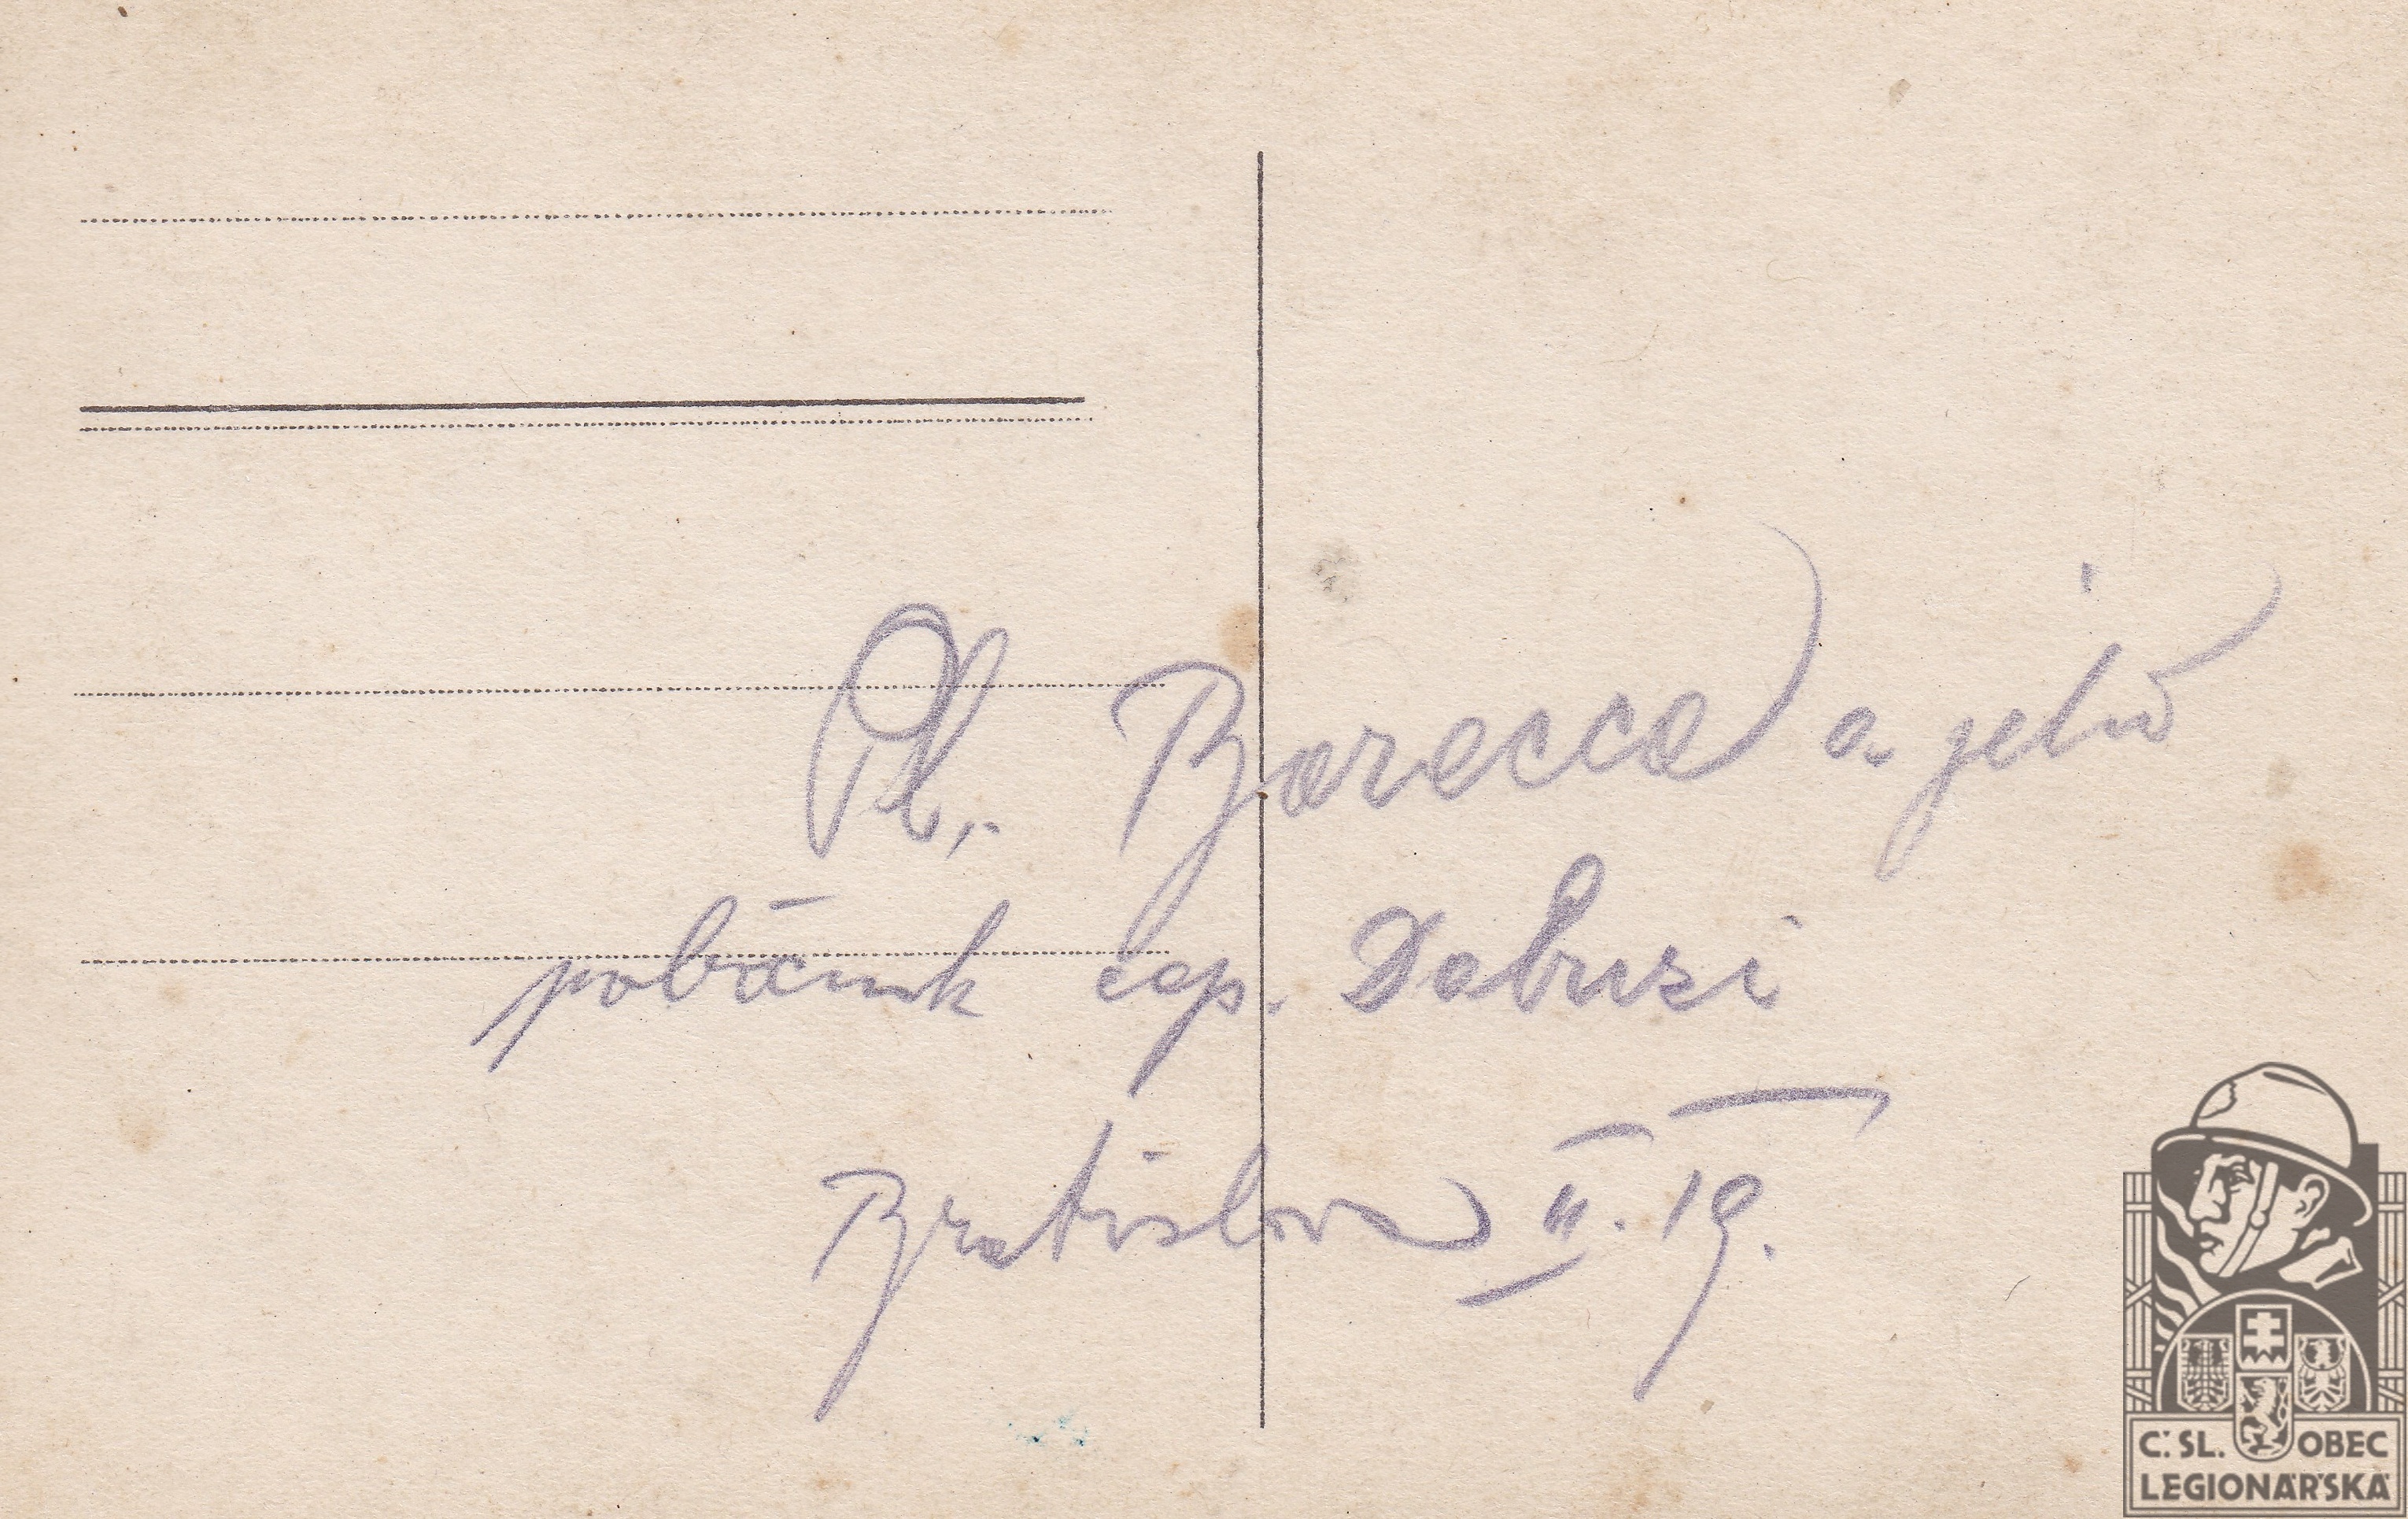 Pl. Barecca a jeho
pobočník cap. Dabusi
Bratislava II. 19.
Č. SL. OBEC
LEGIONÁŘSKÁ